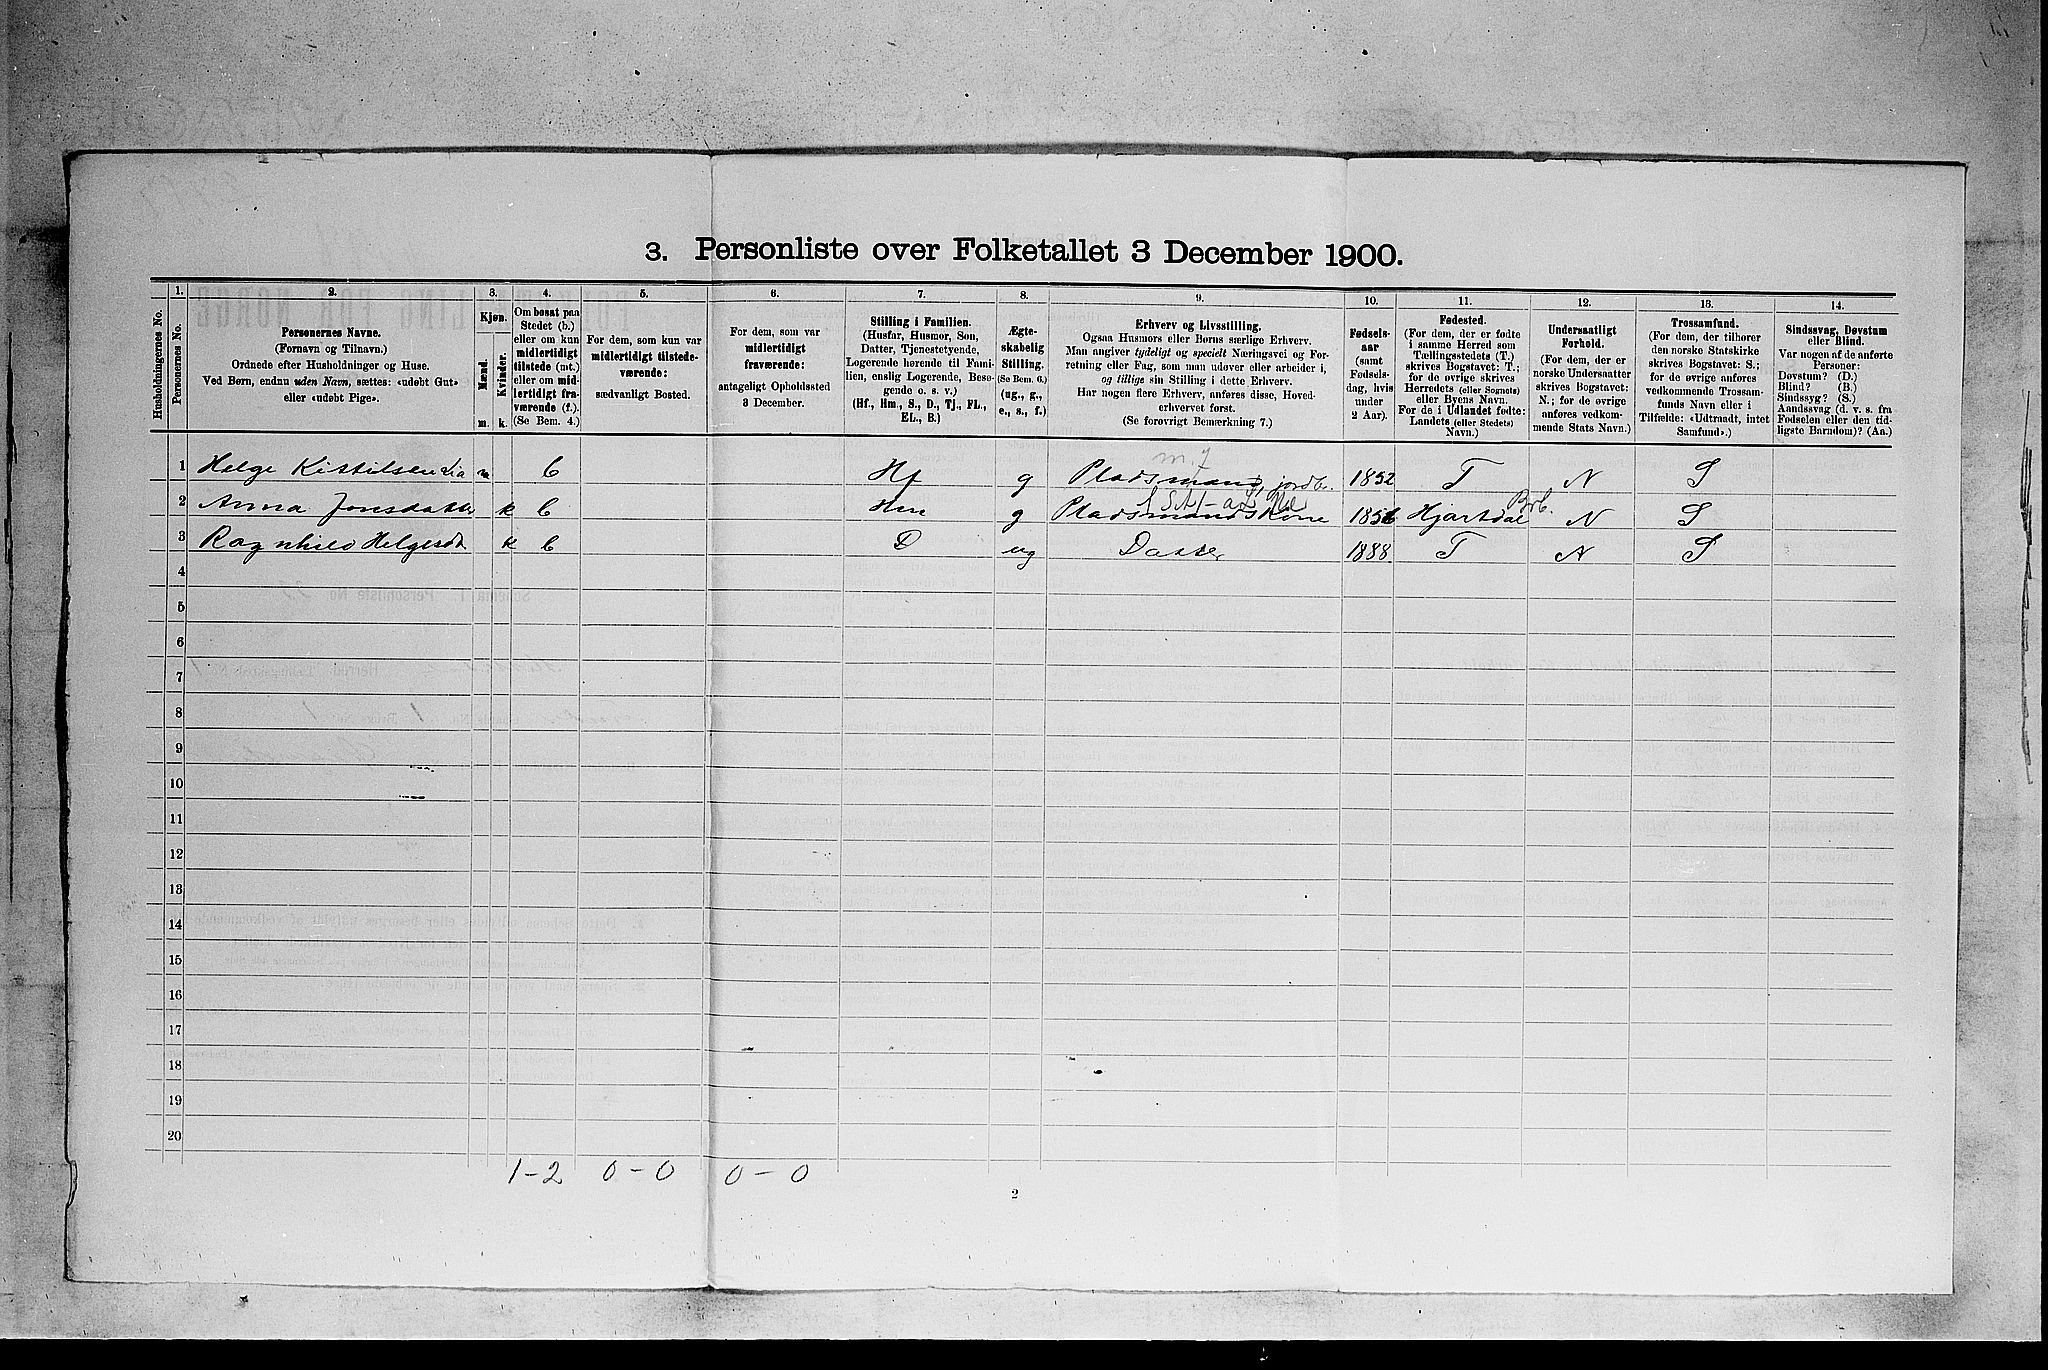 3. Personliste over Folketallet 3 December 1900.
1.
2.
3.
4.
5.
6.
7.
8.
9.
10.
11.
12.
13.
14.
Husholdningernes No.
Personernes No.
Personernes Navne.
(Fornavn og Tilnavn.)
Ordnede efter Husholdninger og Huse.
Ved Børn, endnu uden Navn, sættes: «udøbt Gut»
eller «udøbt Pige».
Kjøn.
Mænd.
Kvinder.
m.
k.
Om bosat paa
Stedet (b.)
eller om kun
midlertidigt
tilstede (mt.)
eller om mid-
lertidigt fra-
værende (f.).
(Se Bem. 4.)
For dem, som kun var
midlertidigt tilstede-
værende:
sædvanligt Bosted.
For dem, som var
midlertidigt
fraværende:
antageligt Opholdssted
3 December.
Stilling i Familien.
(Husfar, Husmor, Søn,
Datter, Tjenestetyende,
Logerende hørende til Fami-
lien, enslig Logerende, Besø-
gende o. s. v.)
(Hf., Hm., S., D., Tj., FL.,
EL., B.)
Ægte-
skabelig
Stilling.
(Se Bem. 6.)
(ug., g.,
e., s., f.)
Erhverv og Livsstilling.
Ogsaa Husmors eller Børns særlige Erhverv.
Man angiver tydeligt og specielt Næringsvei og For-
retning eller Fag, som man udøver eller arbeider i,
og tillige sin Stilling i dette Erhverv.
Har nogen flere Erhverv, anføres disse, Hoved-
erhvervet først.
(Se forøvrigt Bemærkning 7.)
Fødsels-
aar
(samt
Fødsels-
dag, hvis
under
2 Aar).
Fødested.
(For dem, der er fødte
i samme Herred som
Tællingsstedets (T.)
skrives Bogstavet: T.;
for de øvrige skrives
Herredets (eller Sognets)
eller Byens Navn.
For de i Udlandet fødte:
Landets (eller Stedets)
Navn.)
Undersaatligt
Forhold.
(For dem, der er
norske Undersaatter
skrives Bogstavet:
N.; for de øvrige
anføres vedkom-
mende Stats Navn.)
Trossamfund.
(For dem, der tilhører
den norske Statskirke
skrives Bogstavet: S.;
for de øvrige anføres
vedkommende Trossam-
funds Navn eller i
Tilfælde: «Udtraadt, intet
Samfund».)
Sindssvag, Døvstum
eller Blind.
Var nogen af de anførte
Personer:
Døvstum? (D.)
Blind? (B.)
Sindssyg? (S.)
Aandssvag (d. v. s. fra
Fødselen eller den tid-
ligste Barndom)? (Aa.)
1 Helge Kittilsen Lia m b Hf g Pladsmand, jordbr. 1852 T N S
2 Anna Jonsdatter k b Hm g Pladsmandskone Hjartdal Brb. N S
3 Ragnhild Helgesdt k b D ug Datter 1888 T N S
4
5
6
7
8
9
10
11
12
13
14
15
16
17
18
19
20
1-2 0-0 0-0
2